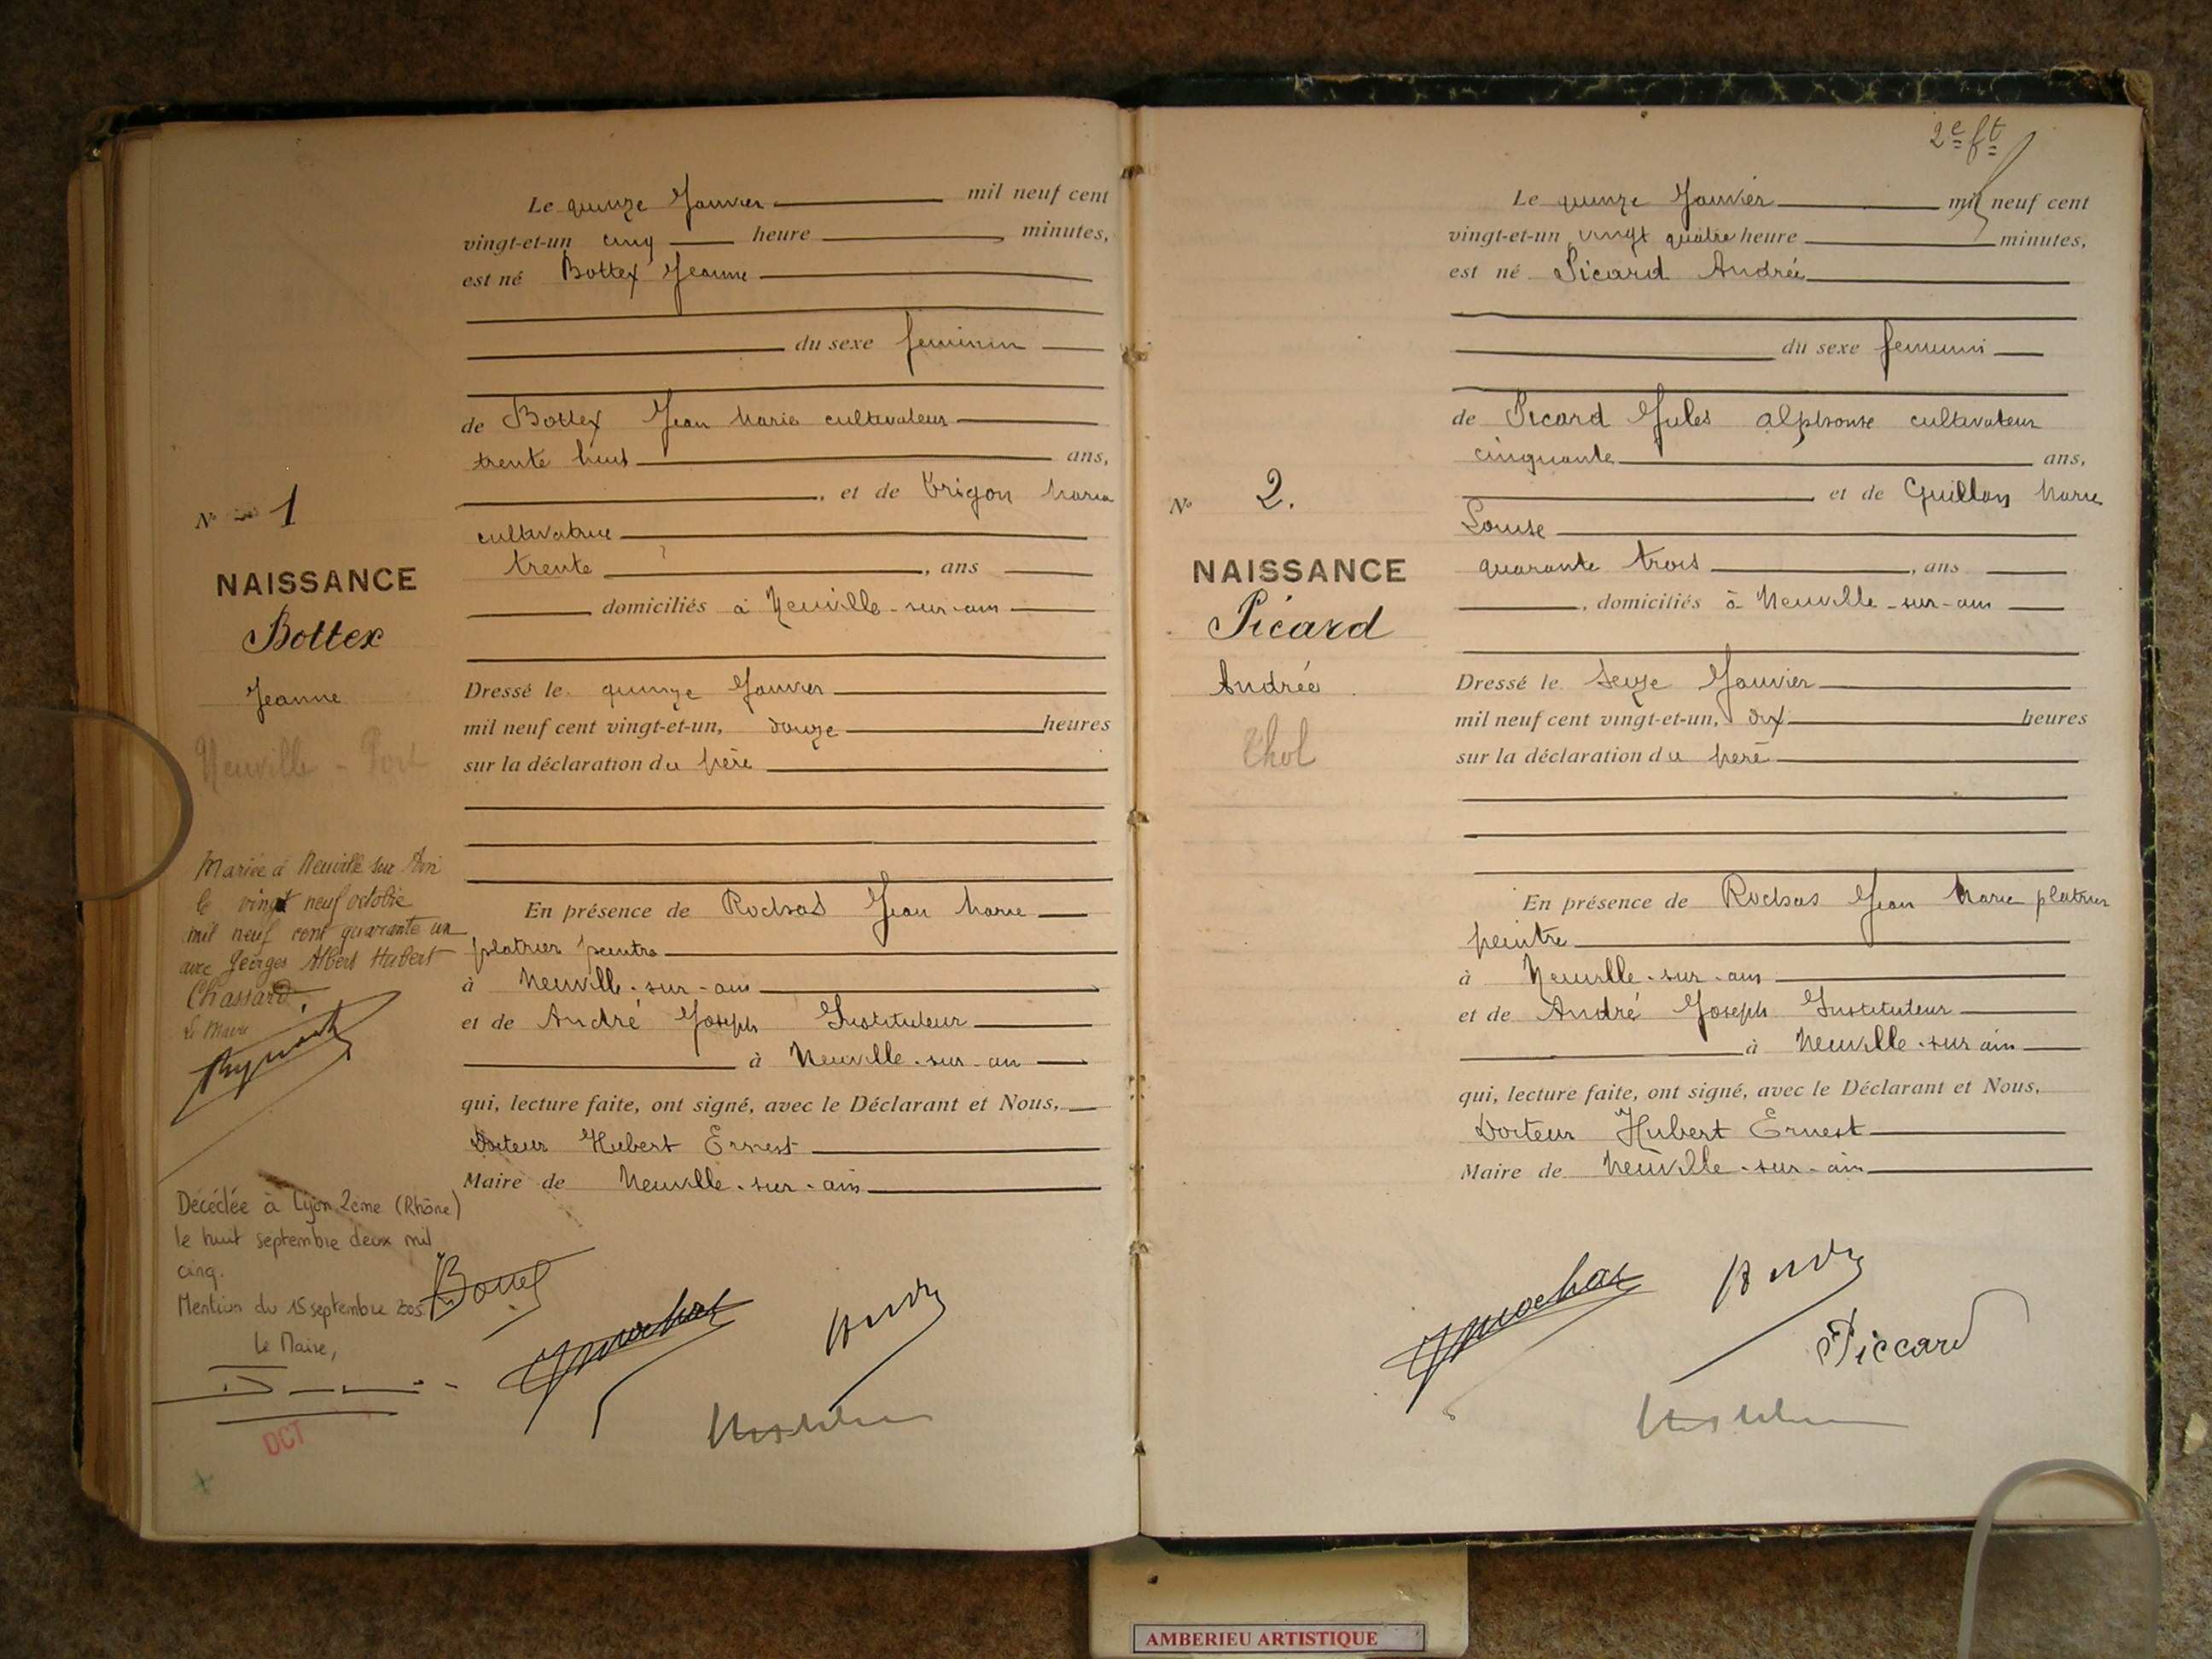 Le quinze Janvier mil neuf cent
vingt-et-un cinq heure minutes,
est né Bottex Jeanne
du sexe feminin
de Bottex Jean Marie cultivateur
trente huit ans,
, et de Trigon Maria
cultivatrice
trente , ans
domiciliés à Neuville-sur-ain
Dressé le quinze Janvier
mil neuf cent vingt-et-un, douze heures
sur la déclaration du père
En présence de Rochas Jean Marie
platrier peintre
à Neuville-sur-ain
et de André Joseph Instituteur
à Neuville-sur-ain
qui, lecture faite, ont signé, avec le Déclarant et Nous,
Docteur Hubert Ernest
Maire de Neuville-sur-ain
No 1
NAISSANCE
Bottex
Jeanne
Neuville - Port
Mariée à Neuville sur Ain
le vingt neuf octobre
mil neuf cent quarante un
avec Georges Albert Hubert
Chassard.
Le Maire
Décédée à Lyon 2ème (Rhône)
le huit septembre deux mil
cinq.
Mention du 15 septembre 2005
Le Maire,
DCT
Bottex
2e ft
Le quinze Janvier mil neuf cent
vingt-et-un vingt quatre heure minutes,
est né Picard Andrée
du sexe feminin
de Picard Jules Alphonse cultivateur
cinquante ans,
et de Guillon Marie
Louise
quarante trois , ans
, domiciliés à Neuville-sur-ain
Dressé le Seize Janvier
mil neuf cent vingt-et-un, dix heures
sur la déclaration du père
En présence de Rochas Jean Marie platrier
peintre
à Neuville-sur-ain
et de André Joseph Instituteur
à Neuville-sur ain
qui, lecture faite, ont signé, avec le Déclarant et Nous,
Docteur Hubert Ernest
Maire de Neuville-sur-ain
No 2.
NAISSANCE
Picard
Andrée
Thol
Piccard
AMBERIEU ARTISTIQUE